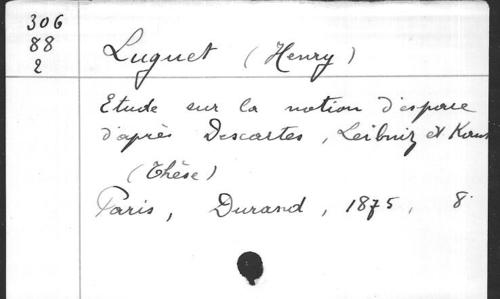 306
88
2
Luguet (Henry)
Etude sur la notion d'espace
d'après Descartes, Leibniz et Kant
(Thèse)
Paris, Durand, 1875, 8.